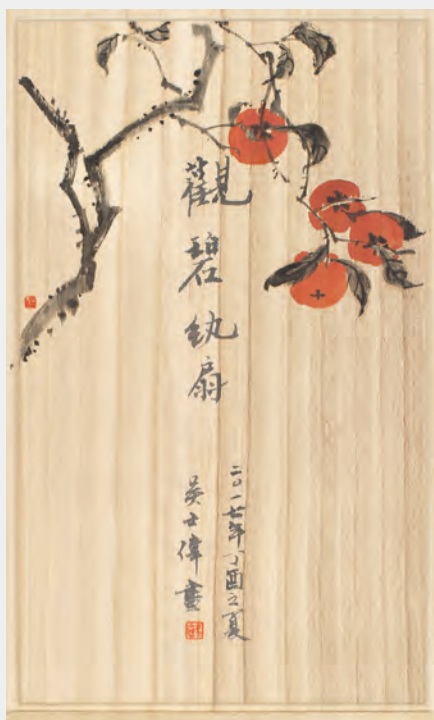 觀碧紈扇
二〇一七年丁酉之夏
吳士偉畫